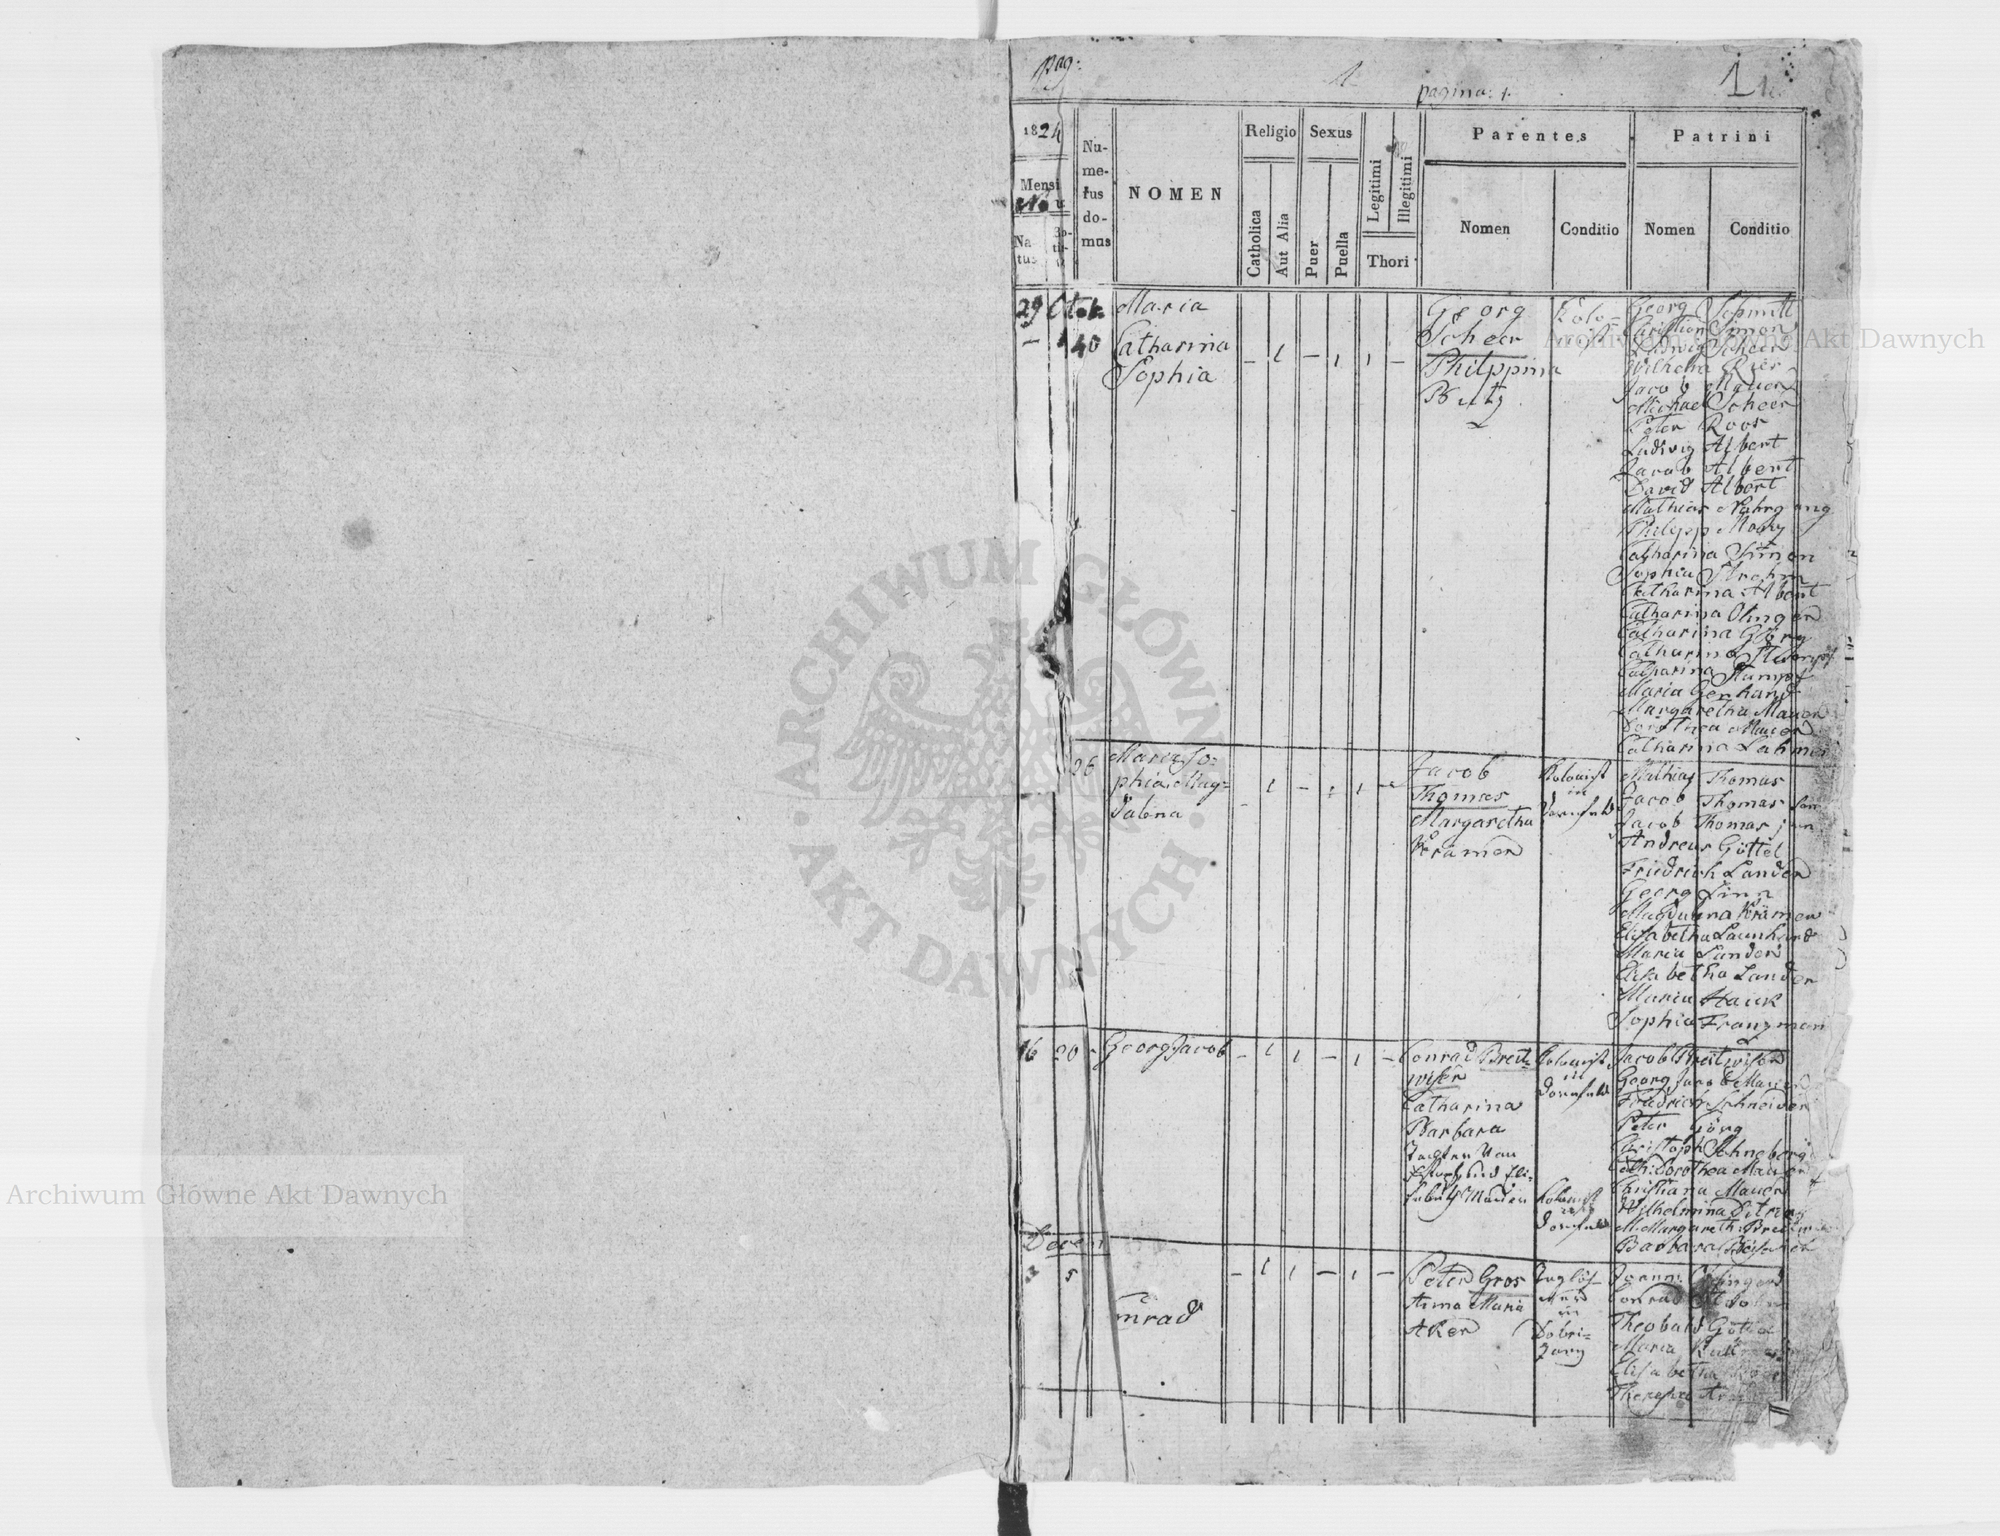 pag:
1
pagina: 1.
1
1824
Mensi
Nov
Na-
tus
Nu-
me-
rus
do-
mus
NOMEN
Religio
Catholica
Aut Alia
Sexus
Puer
Puella
Legitimi
Illegitimi
Thori
Parentes
Nomen
Conditio
Patrini
Nomen
Conditio
29 Octob.
40
Maria
Catharina
Sophia
– 1 – 1 1 –
Georg
Scheer
Philppina
Butz
Kolo-
nist
Georg Schmitt
Christian Simon
Ludwig Scheer
Wilhelm Rier
Jacob Mauer
Michael Scheer
Peter Roos
Ludwig Albert
Jacob Albert
David Albert
Mathias Nahrgang
Philipp Mosy
Catharina Simon
Sophia Strohm
Catharina Albert
Catharina Olinger
Catharina Görg
Catharina
Catharina Stumpf
Maria Gerhard
Margaretha Mauer
Dorothea Mauer
Catharina Lahmer
26
Maria So-
phia Mag-
dalena
– 1 – 1 1 –
Jacob
Thomas
Margaretha
Krämer
Kolonist
in
Dornfeld
Mathias Thomas
Jacob Thomas sen
Jacob Thomas jun
Andreas Göttel
Friedrich Lander
Georg Linn
Magdalena Krämer
Elisabetha Launhard
Maria Lander
Elisabetha Lander
Maria Hauk
Sophia Franzman
16 20 –
Georg Jacob
– 1 1 – 1 –
Conrad Breit-
wiser
Catharina
Barbara
Tochter von
Christoph und Eli-
sabeth Mauer
Kolonist
in
Dornfeld
Kolonist
in
Dornfeld
Jacob Breitwiser
Georg Jacob Mauer
Friedrich Schneider
Peter Görg
Christoph Schneberger
Cath: Dorothea Mauer
Christiana Mauer
Wilhelmina Ditrich
M. Margareth: Breitwi
Barbara
Decem
3 5
nrad
– 1 1 – 1 –
Peter Gros
Anna Maria
Aker
Taglöh-
ner
in
Dobri-
zany
Conrad
Theobald Göttel
Maria
Elisabetha
Theresia
Archiwum Główne Akt Dawnych
ARCHIWUM GŁÓWNE
AKT DAWNYCH
Archiwum Główne Akt Dawnych